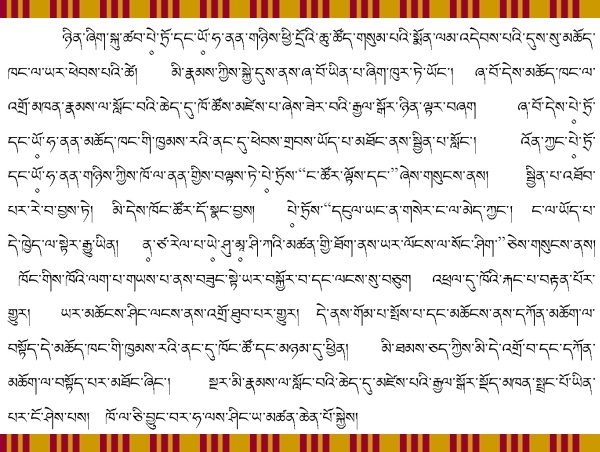 ཉིན་ཞིག་སྐུ་ཚབ་པེ་ཏྲོ་དང་ཡོ་ཧ་ནན་གཉིས་ཕྱི་དྲོའི་ཆུ་ཚོད་གསུམ་པའི་སྨོན་ལམ་འདེབས་པའི་དུས་སུ་མཆོད་
ཁང་ལ་ཡར་ཕེབས་པའི་ཚེ། མི་རྣམས་ཀྱིས་སྐྱེ་དུས་ནས་ཞ་བོ་ཡིན་པ་ཞིག་ཁུར་ཏེ་ཡོང་། ཞ་བོ་དེས་མཆོད་ཁང་ལ་
འགྲོ་མཁན་རྣམས་ལ་སློང་བའི་ཆེད་དུ་ཁོ་ཚོས་མཛེས་པ་ཞེས་ཟེར་བའི་རྒྱལ་སྒོར་ཉིན་ལྟར་བཞག ཞ་བོ་དེས་པེ་ཏྲོ་
དང་ཡོ་ཧ་ནན་མཆོད་ཁང་གི་ཁྱམས་རའི་ནང་དུ་ཕེབས་གྲབས་ཡོད་པ་མཐོང་ནས་སྦྱིན་པ་སློང་། འོན་ཀྱང་པེ་ཏྲོ་
དང་ཡོ་ཧ་ནན་གཉིས་ཀྱིས་ཁོ་ལ་ནན་གྱིས་བལྟས་ཏེ་པེ་ཏྲོས་“ང་ཚོར་ལྟོས་དང་”ཞེས་གསུངས་ནས། སྦྱིན་པ་འཐོབ་
པར་རེ་བ་བྱས་ཏེ། མི་དེས་ཁོང་ཚོར་དོ་སྣང་བྱས། པེ་ཏྲོས་“དངུལ་ཡང་ན་གསེར་ང་ལ་མེད་ཀྱང་། ང་ལ་ཡོད་པ་
དེ་ཁྱེད་ལ་སྟེར་རྒྱུ་ཡིན། ནཱ་ཙ་རེལ་པ་ཡེ་ཤུ་མཱ་ཤི་ཀའི་མཚན་གྱི་ཐོག་ནས་ཡར་ལོངས་ལ་སོང་ཤིག་”ཅེས་གསུངས་ནས།
ཁོང་གིས་ཁོའི་ལག་པ་གཡས་པ་ནས་བཟུང་སྟེ་ཡར་བསྐྱོར་བ་དང་ལངས་སུ་བཅུག འཕྲལ་དུ་ཁོའི་རྐང་པ་བརྟན་པོར་
གྱུར། ཡར་མཆོངས་ཤིང་ལངས་ནས་འགྲོ་ཐུབ་པར་གྱུར། དེ་ནས་གོམ་པ་སྤོས་པ་དང་མཆོངས་ནས་དཀོན་མཆོག་ལ་
བསྟོད་དེ་མཆོད་ཁང་གི་ཁྱམས་རའི་ནང་དུ་ཁོང་ཚོ་དང་མཉམ་དུ་ཕྱིན། མི་ཐམས་ཅད་ཀྱིས་མི་དེ་འགྲོ་བ་དང་དཀོན་
མཆོག་ལ་བསྟོད་པར་མཐོང་ཞིང་། སྔར་མི་རྣམས་ལ་སློང་བའི་ཆེད་དུ་མཛེས་པའི་རྒྱལ་སྒོར་སྡོད་མཁན་སྤྲང་པོ་ཡིན་
པར་ངོ་ཤེས་པས། ཁོ་ལ་ཅི་བྱུང་བར་ཧ་ལས་ཤིང་ཡ་མཚན་ཆེན་པོ་སྐྱེས།